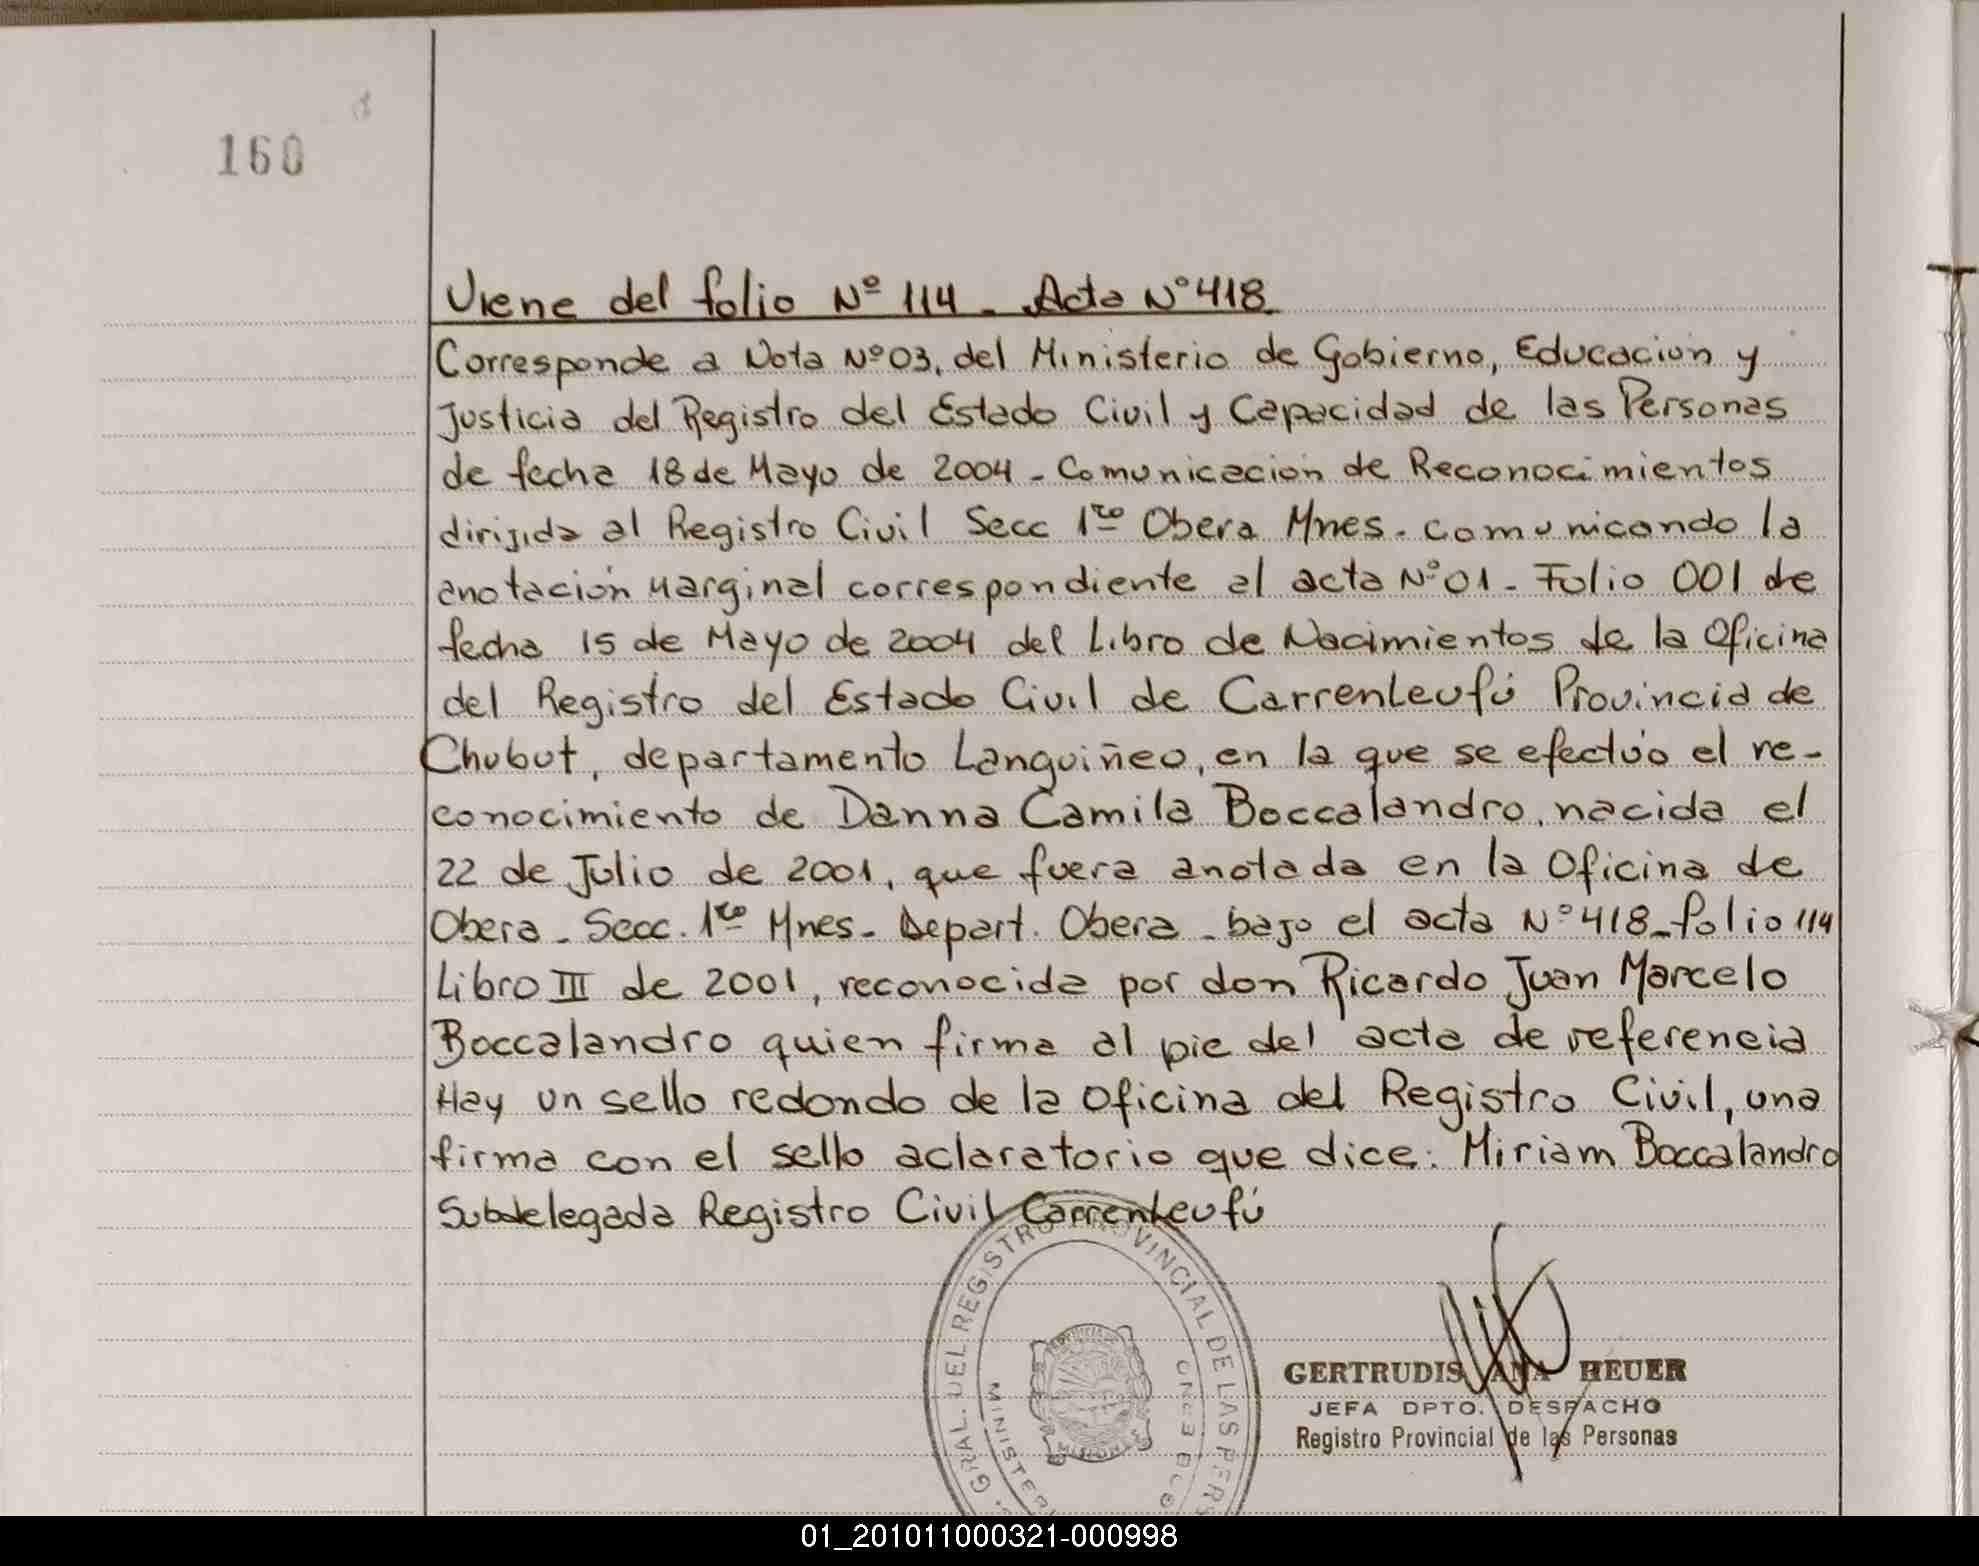 160
Viene del folio Nº 114 - Acta Nº 418
Corresponde a Nota Nº 03, del Ministerio de Gobierno, Educación y
Justicia del Registro del Estado Civil y Capacidad de las Personas
de fecha 18 de Mayo de 2004 - Comunicación de Reconocimientos
dirijida al Registro Civil Secc 1ra Obera Mnes. comunicando la
anotación marginal correspondiente al acta Nº 01 - Folio 001 de
fecha 15 de Mayo de 2004 del Libro de Nacimientos de la Oficina
del Registro del Estado Civil de Carrenleufú Provincia de
Chubut, departamento Languiñeo, en la que se efectúo el re-
conocimiento de Danna Camila Boccalandro, nacida el
22 de Julio de 2001, que fuera anotada en la Oficina de
Obera - Secc. 1ra Mnes - Depart. Obera - bajo el acta Nº 418 - folio 114
Libro III de 2001, reconocida por don Ricardo Juan Marcelo
Boccalandro quien firma al pie del acta de referencia
Hay un sello redondo de la Oficina del Registro Civil, una
firma con el sello aclaratorio que dice: Miriam Boccalandro
Subdelegada Registro Civil Carrenleufú
GRAL. DEL REGISTRO PROVINCIAL DE LAS PERS
MINISTER
GERTRUDIS ANA HEUER
JEFA DPTO. DESPACHO
Registro Provincial de las Personas
01_201011000321-000998